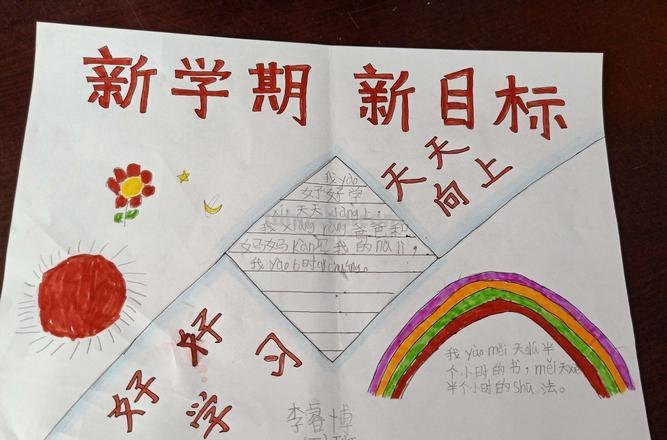 新学期 新目标
天天
向上
我yao
好好学
xi，天天xiang上，
我xiang rang爸爸和
妈妈kan见我的nu li，
我yao 6时qi chuang。
好好
学习
我yào měi天dú半
个小时的书，měi天xiě
半个小时的shū法。
李睿博